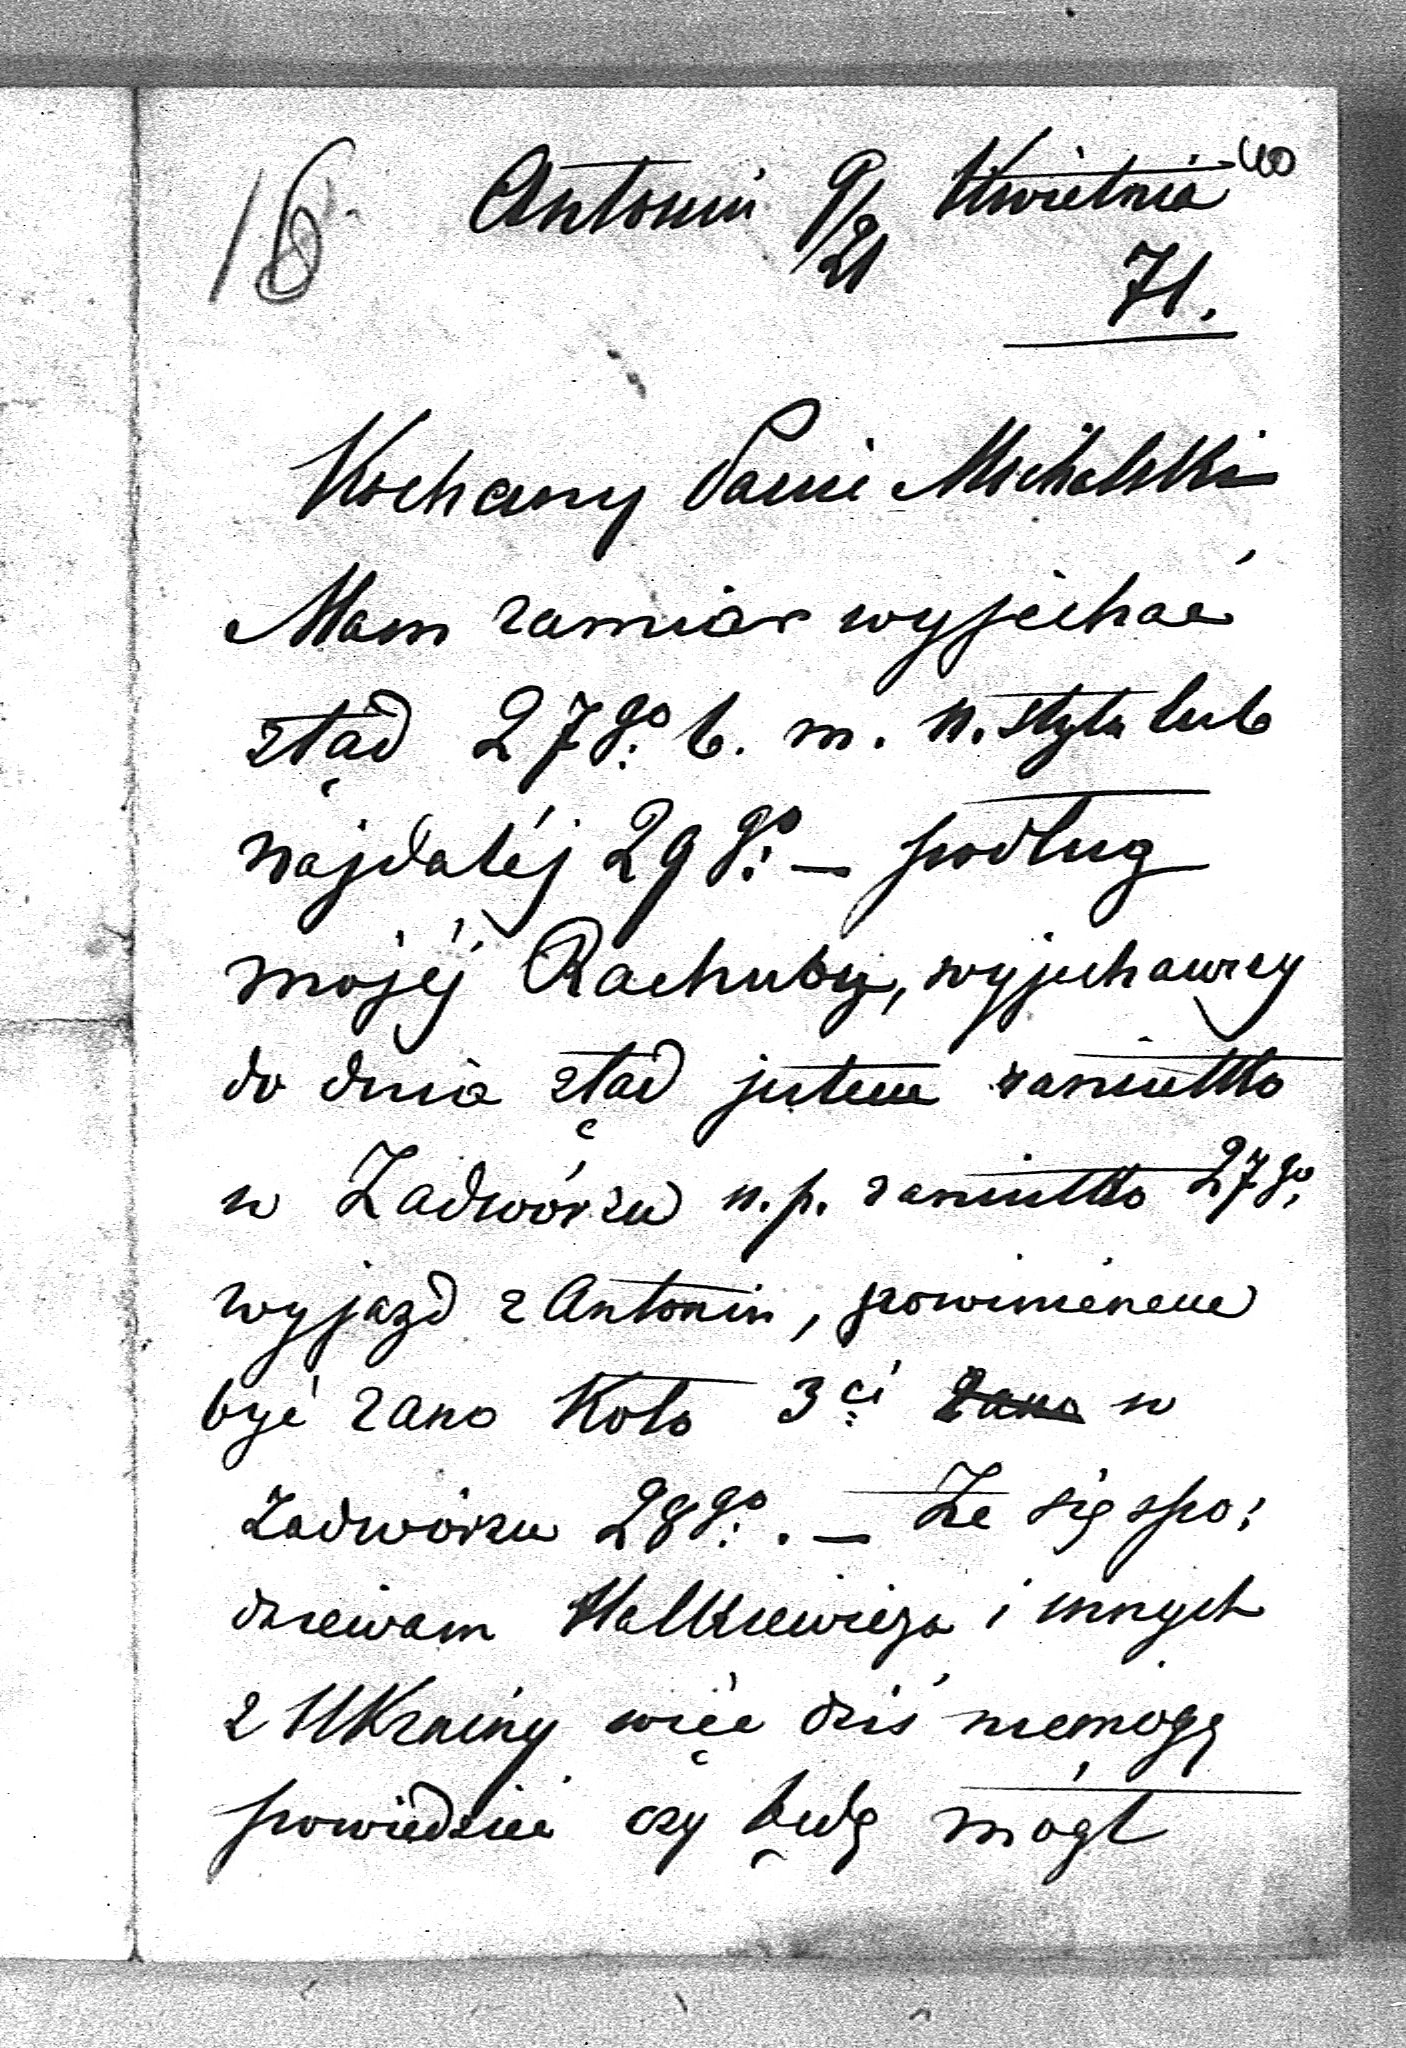 16
40
Antonin 9/21 Kwietnia
71.
Kochany Panie Michalski
Mam zamiar wyjechać
ztąd 27go b. m. n. stylu lub
najdaléj 29go — podług
mojéj Rachuby, wyjechawszy
do dnia ztąd jestem raniutko
w Zadwórzu n.p. raniutko 27go
wyjazd z Antonin, powinienem
być rano Koło 3ci rano w
Zadwórzu 28go. — Że się spo:
dziewam Malkiewicza i innych
z UKrainy więc dziś niemogę
powiedzieć czy będę mógł